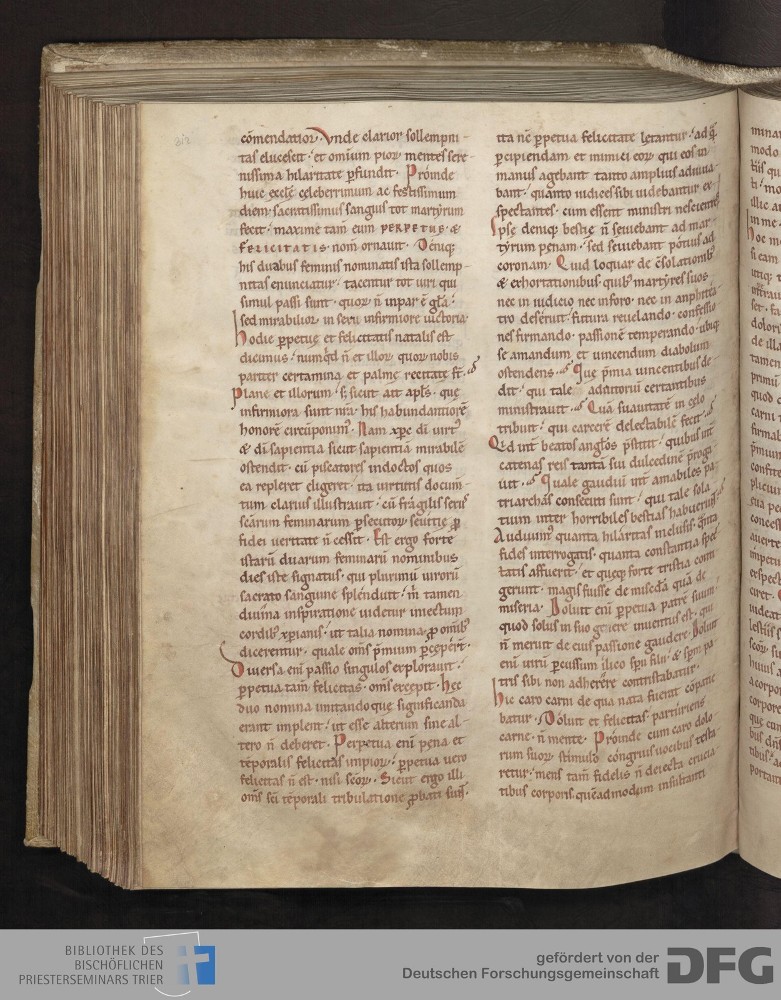 cōmendatior. Vnde clarior sollempni-
tas elucescit. et omium pior mentes sere-
nissima hilaritate ꝑfundit. Proinde
huic eccłe celeberrimum ac festissimum
diem sacratissimus sanguis tot martyrum
fecit. maxime tam̄ eum PERPETUE &
FELICITATIS nom̄ ornauit. Deniq;
his duabus feminis nominatis ista sollemp-
nitas enunciatur. tacentur tot uiri qui
simul passi sunt. quor n̄ inpar ē gła.
sed mirabilior in sexu infirmiore uictoria.
hodie perpetue et felicitatis natalis est
dicimus. numqd n̄ et illor quor nobis
pariter certamina et palme recitate st̄.
Plane et illorum. s; sicut ait apls. que
infirmiora sunt nr̄a. his habundantiorē
honorē circūponim⁹. Nam xp̄c di uirt⁹
& dī sapientia sicut sapientia mirabilē
ostendit. cū piscatores indoctos quos
ea repleret eligeret. ita uirtutis docum̄-
tum clarius illustrauit. cū fragilis sex⁹
scārum feminarum ꝑsecutor seuitie ꝓ
fidei ueritate n̄ cessit. Est ergo forte
istarū duarum feminarū nominibus
dies iste signatus. qui plurimū uirorū
sacrato sanguine splenduit. in̄ tamen
diuina inspiratione uidetur iniectum
cordib⁹ xp̄ianis. ut talia nomina ꝓ om̄ib⁹
dicerentur. quale om̄s p̄mium ꝑcepert.
Diuersa eni passio singulos explorauit.
ꝑpetua tam̄ felicitas om̄s excepit. Hec
duo nomina imitandoque significanda
erant implent. ut esse alterum sine al-
tero n̄ deberet. Perpetua enī pena et
tēporalis felicitas impior. ꝑpetua uero
felicitas n̄ est. nisi scōr. Sicut ergo illi
om̄s sci tēporali tribulatione ꝓbati sunt.
ita nē ꝑpetua felicitate letantur. ad q̄
ꝑcipiendam et inimici eor qui eos in
manus agebant tanto amplius adiuua-
bant. quanto iudices sibi uidebantur ex-
spectantes. cum essent ministri nescientes
Ipse denique bestie n̄ seuiebant ad mar-
tyrum penam. sed seuiebant potius ad
coronam. Quid loquar de c̄solationib⁹
& exhortationibus quib⁹ martyres suos
nec in iudicio nec in foro. nec in anphitea-
tro deseruit. futura reuelando. confessio-
nes firmando. passionē temperando. ubiq;
se amandum et uincendum diabolum
ostendens. Que p̄mia uincentibus de-
dit. qui tale adiutoriū certantibus
ministrauit. Quā suauitatē in celo
tribuit. qui carcerē delectabilē fecit.
Qd int̄ beatos anglōs p̄stitit. quibus int̄
catenas reis tantā sui dulcedinē proga-
uit. Quale gaudiū int̄ amabiles pa-
triarchas consecuti sunt. qui tale sola-
tium inter horribiles bestias habuerunt.
Audiuim⁹ quanta hilaritas inclusis. q̄nta
fides interrogatis. quanta constantia spec-
tatis affuerit. et queq; forte tristia conti-
gerint. magis fuisse de misedā quā de
miseria. Doluit enī ꝑpetua patrē suum.
quod solus in suo genere inuentus est. qui
n̄ meruit de eius passione gaudere. Doluit
enī uirū percussum ilico spū filii. & spm̄ pa-
tris sibi non adherere contristabatur.
hic caro carni de qua nata fuerat cōpatie-
batur. Doluit et felicitas. parturiens
carne. n̄ mente. Proinde cum caro dolo-
rum suor stimulo congruis uocibus testa-
retur. mens tam̄ fidelis n̄ deiecta crucia-
tibus corporis. queadmodum insultanti
BIBLIOTHEK DES
BISCHÖFLICHEN
PRIESTERSEMINARS TRIER
gefördert von der
Deutschen Forschungsgemeinschaft
DFG